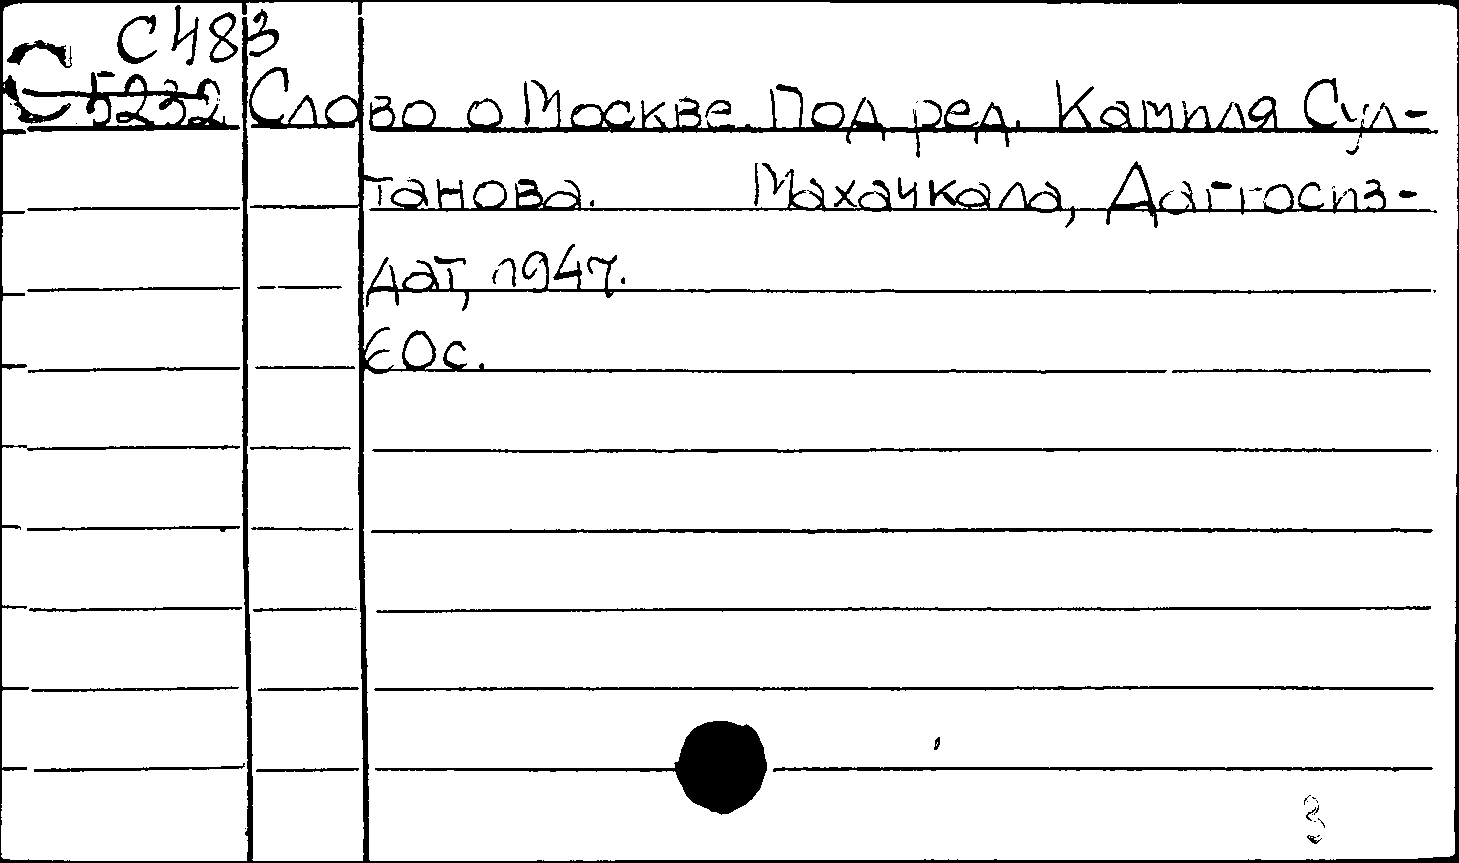 С483
С 5232 Слово о Москве. Под ред. Камиля Сул-
танова. Махачкала, Даггосиз-
дат, 1947.
60с.
3